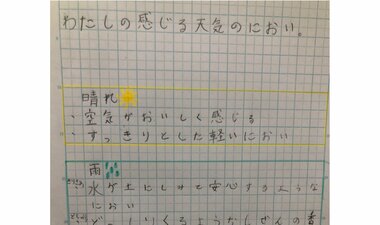 わたしの感じる天気のにおい。
晴れ
・空気がおいしく感じる
・すっきりとした軽いにおい
雨
水が土にしみて安心するような
におい
どっしりくるようなしぜんの香